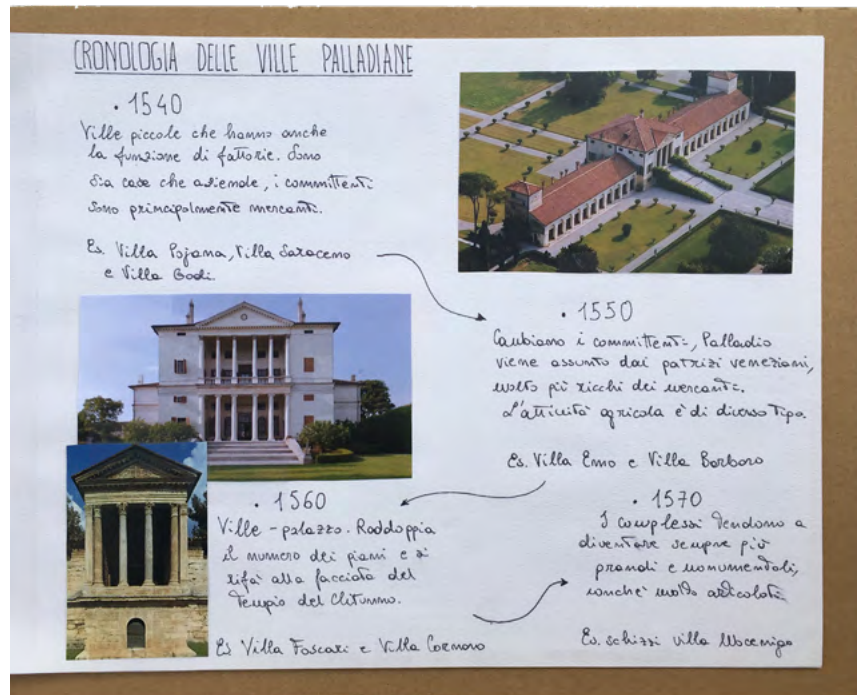 CRONOLOGIA DELLE VILLE PALLADIANE
· 1540
Ville piccole che hanno anche
la funzione di fattorie. Sono
sia case che aziende, i committenti
sono principalmente mercanti.
Es. Villa Pojana, Villa Saraceno
e Villa Godi.
· 1550
Cambiano i committenti, Palladio
viene assunto dai patrizi veneziani,
molto più ricchi dei mercanti.
L'attività agricola è di diverso tipo.
Es. Villa Emo e Villa Barbaro
· 1560
Ville - palazzo. Raddoppia
il numero dei piani e si
rifà alla facciata del
Tempio del Clitunno.
Es Villa Foscari e Villa Cornaro
· 1570
I complessi tendono a
diventare sempre più
grandi e monumentali,
nonché molto articolati.
Es. schizzi villa Mocenigo